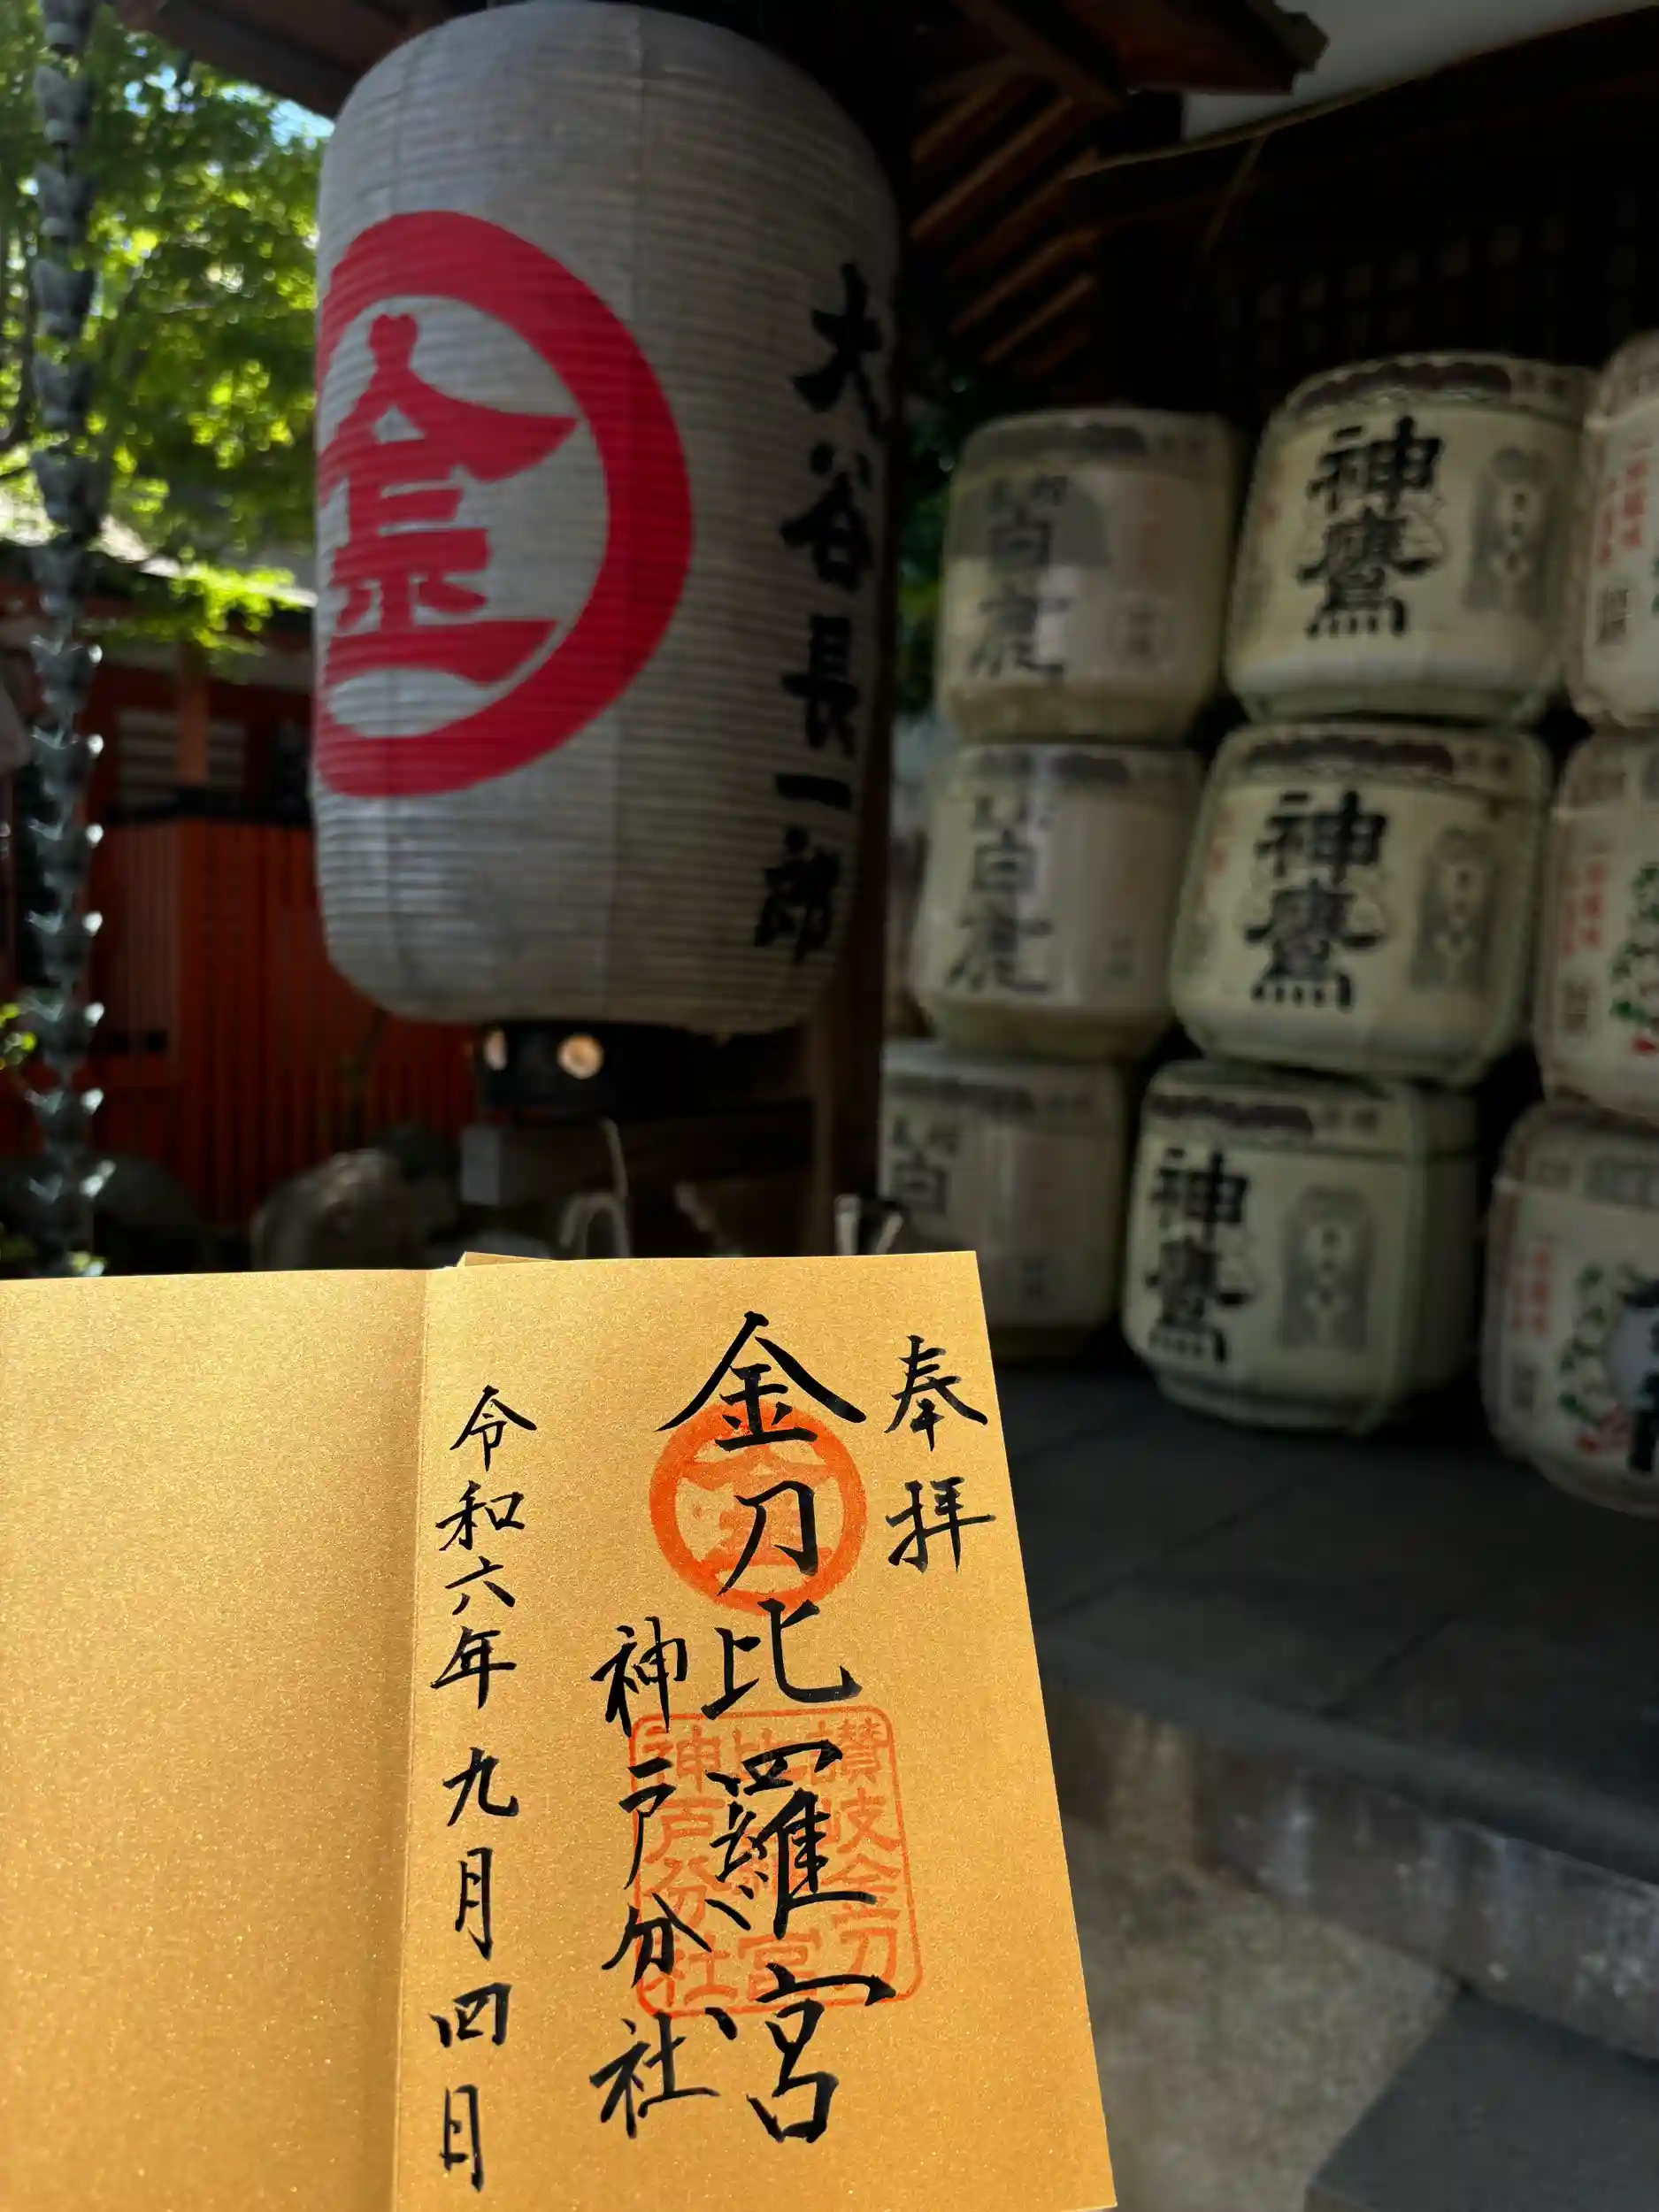 金
大谷長一郎
白鹿
神鷹
白鹿
神鷹
白
神鷹
奉拝
金刀比羅宮
神戸分社
令和六年九月四日
讃岐金刀
比羅宮
神戸分社